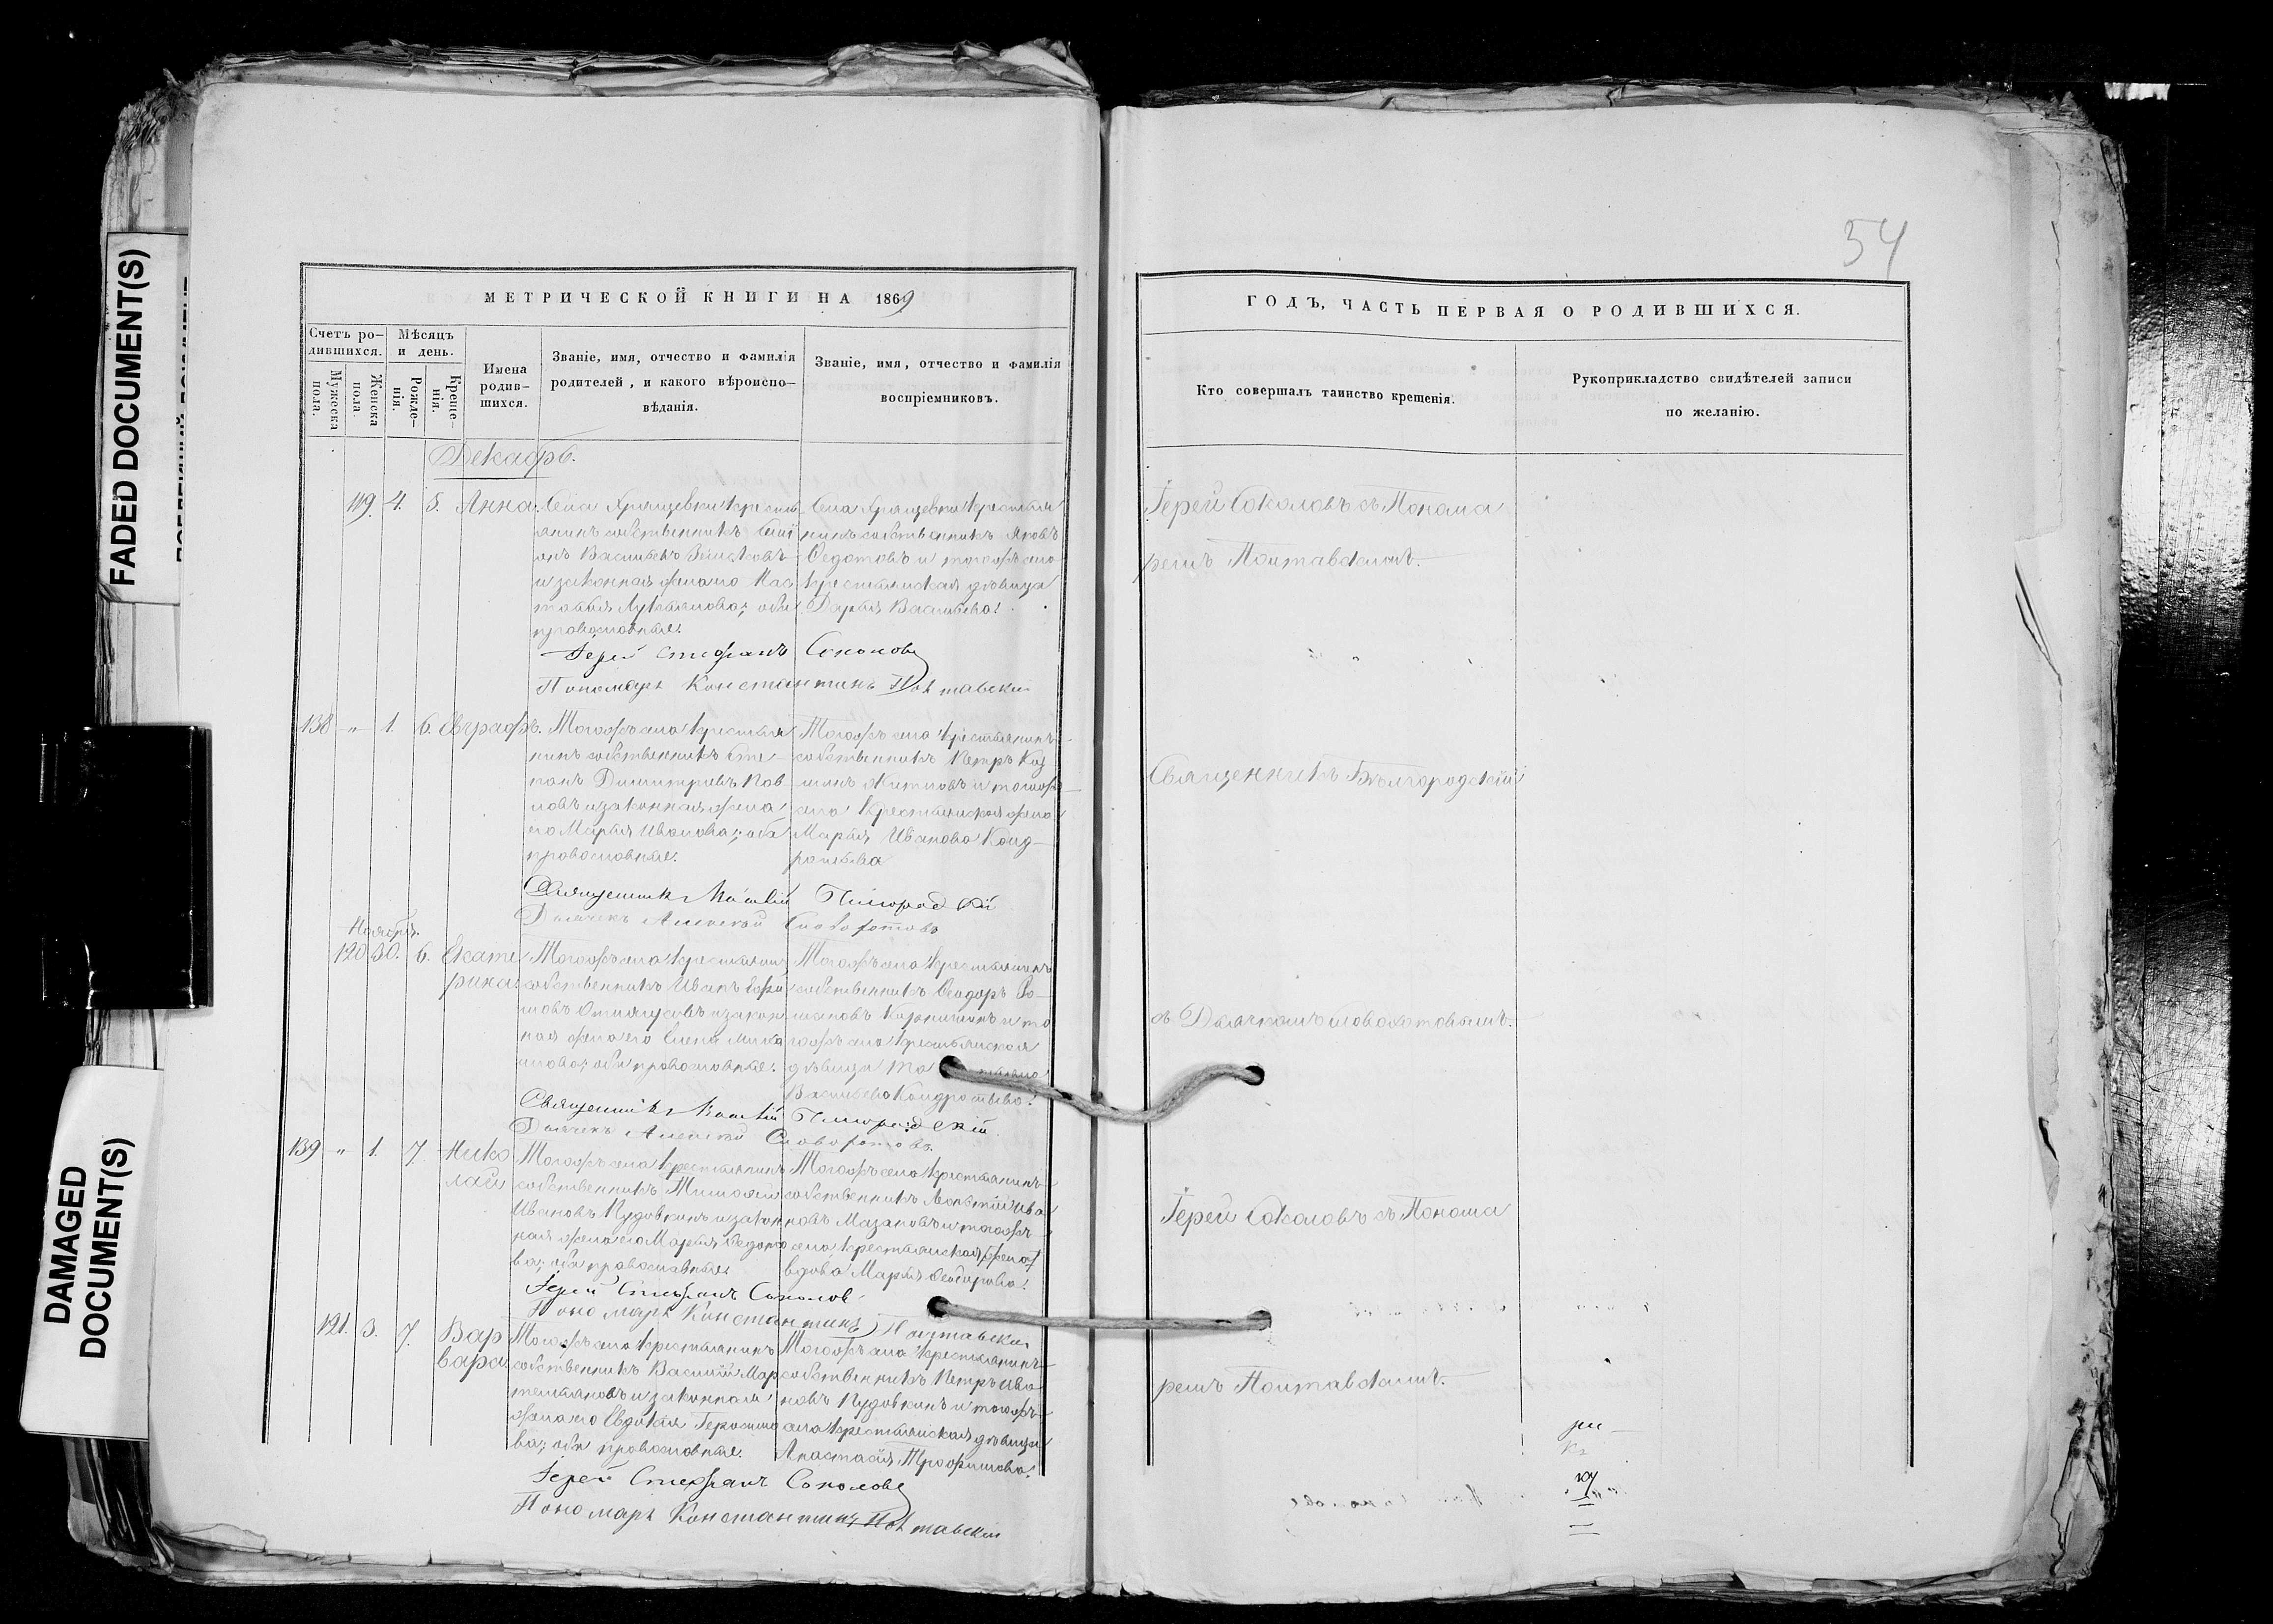 FADED DOCUMENT(S)
DAMAGED
DOCUMENT(S)
МЕТРИЧЕСКОЙ КНИГИ НА 1869
Счетъ ро-
дившихся.
Мѣсяцъ
и день.
Мужеска
пола.
Женска
пола.
Рожде-
нія.
Креще-
нія.
Имена
родив-
шихся.
Званіе, имя, отчество и фамилія
родителей, и какого вѣроиспо-
вѣданія.
Званіе, имя, отчество и фамилія
воспріемниковъ.
Декабрь.
119. 4. 5. Анна. Села Хрящевки крестья-
янинъ собственникъ
анъ Васильевъ
и законная жена его Нас
тасья Лукьянова; оба
православные.
Села Хрящевки крестья
нинъ собственникъ Яковъ
Ѳедотовъ и тогожъ села
крестьянская дѣвица
Дарья Васильева.
Іерей Стефанъ Соколовъ
Пономарь Константинъ Полтавскій
138 " 1. 6. Евграфъ. Тогожъ села крестья
нинъ собственникъ Сте-
панъ Димитріевъ Пав
ловъ и законная жена
его Марья Иванова; оба
православные.
Тогожъ села крестьянинъ
собственникъ Петръ Коз
минъ и тогожъ
села крестьянская жена
Марья Иванова Конд-
ратьева
Священникъ
Дьячекъ Алексей
Ноября.
120 30. 6. Екате
рина.
Тогожъ села крестьянинъ
собственникъ Иванъ
и закон
ная жена его Елена
оба православные.
Тогожъ села крестьянинъ
собственникъ Ѳеодоръ Ро-
мановъ и то
гожъ села крестьянская
дѣвица
Васильева Кондратьева.
Священникъ
Дьячекъ Алексей
139 " 1. 7. Нико
лай
Тогожъ села крестьянинъ
собственникъ Тимоѳей
Ивановъ Пудовкинъ и закон
ная жена его Марья Ѳедото
ва; оба православные
Тогожъ села крестьянинъ
собственникъ Леонтій Ива
новъ Мазановъ и тогожъ
села крестьянская
вдова Марья Ѳеодорова.
Іерей Стефанъ Соколовъ
Пономарь Константинъ Полтавскій
121. 3. 7. Вар
вара.
Тогожъ села крестьянинъ
собственникъ Василій Мар
темьяновъ и законная
жена его Евдокія Герасимо
ва; оба православные.
Тогожъ села крестьянинъ
собственникъ Петръ Ива
новъ Пудовкинъ и тогожъ
села крестьянская дѣвица
Анастасія Трофимова.
Іерей Стефанъ Соколовъ
Пономарь Константинъ Полтавскій
54
ГОДЪ, ЧАСТЬ ПЕРВАЯ О РОДИВШИХСЯ.
Кто совершалъ таинство крещенія.
Рукоприкладство свидѣтелей записи
по желанію.
Іерей Соколовъ съ Понома
ремъ Полтавскимъ.
Священникъ Бѣлгородскій
съ Дьячкомъ
Іерей Соколовъ съ Понома
ремъ Полтавскимъ.